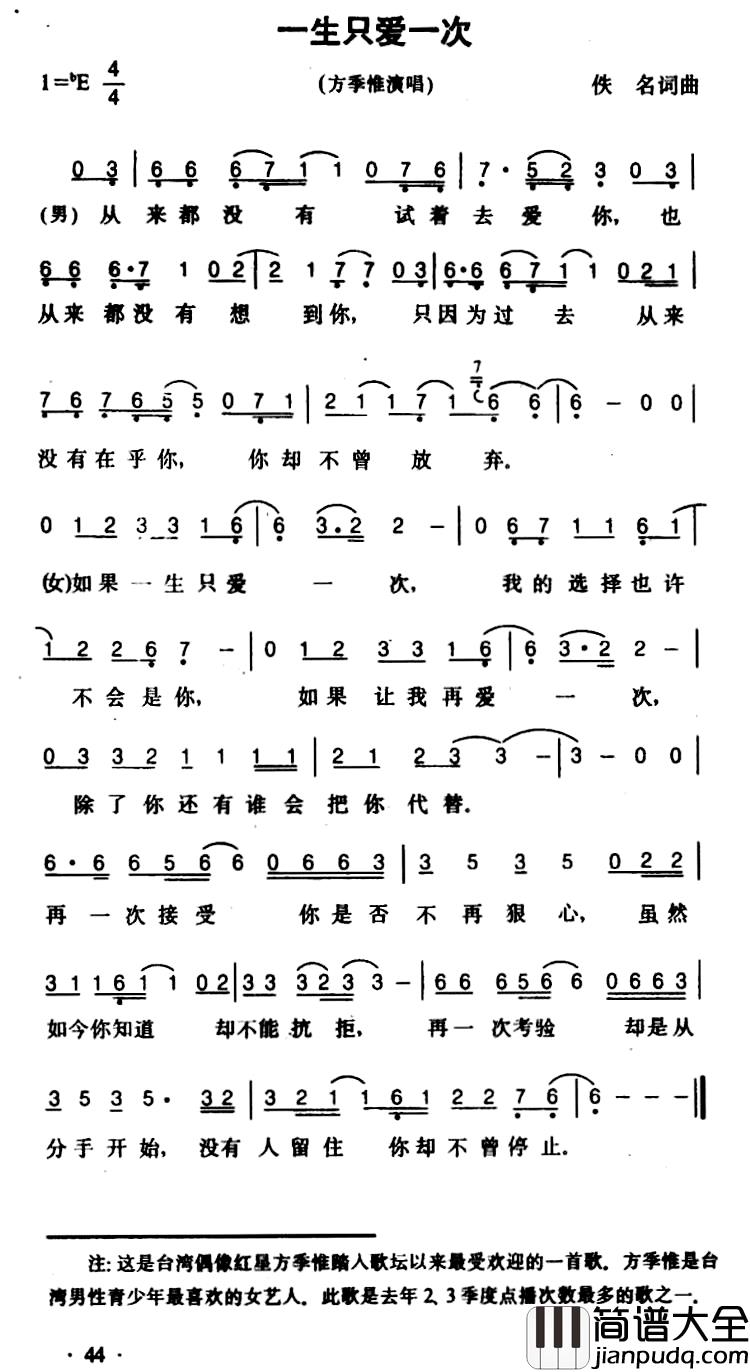 一生只爱一次
1=ᵇE 4/4 (方季惟演唱) 佚 名词曲
0 3 | 6 6 6 7 1 1 0 7 6 | 7· 5 2 3 0 3 |
(男) 从 来都没 有 试着去爱 你, 也
6 6 6·7 1 0 2 | 2 1 7 7 0 3 | 6·6 6 7 1 1 0 2 1 |
从来 都没有 想 到你, 只因为过 去 从来
7 6 7 6 5 5 0 7 1 | 2 1 1 7 1 7 6 6 | 6 - 0 0 |
没有在乎你, 你却不曾 放 弃.
0 1 2 3 3 1 6 | 6 3·2 2 - | 0 6 7 1 1 6 1 |
(女)如果一生只爱 一 次, 我的选择也许
1 2 2 6 7 - | 0 1 2 3 3 1 6 | 6 3·2 2 - |
不会是你, 如果让我再爱 一 次,
0 3 3 2 1 1 1 1 | 2 1 2 3 3 - | 3 - 0 0 |
除了你还有谁会 把你 代替.
6·6 6 5 6 6 0 6 6 3 | 3 5 3 5 0 2 2 |
再一次接受 你是否不再狠心, 虽然
3 1 1 6 1 1 0 2 | 3 3 3 2 3 3 - | 6 6 6 5 6 6 0 6 6 3 |
如今你知道 却不能抗 拒, 再一次考验 却是从
3 5 3 5· 3 2 | 3 2 1 1 1 6 1 2 2 7 6 | 6 - - - ‖
分手开始, 没有人留住 你却不曾停止.
注:这是台湾偶像红星方季惟踏入歌坛以来最受欢迎的一首歌.方季惟是台
湾男性青少年最喜欢的女艺人.此歌是去年2、3季度点播次数最多的歌之一.
· 44 ·
简谱大全
jianpudq.com